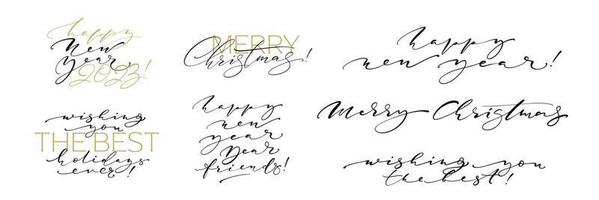 happy
New
Year,
2023!
MERRY
Christmas!
happy
new year!
wishing
you
THE BEST
holidays
ever!
happy
new
year
dear
friends!
Merry Christmas
wishing you
the best!